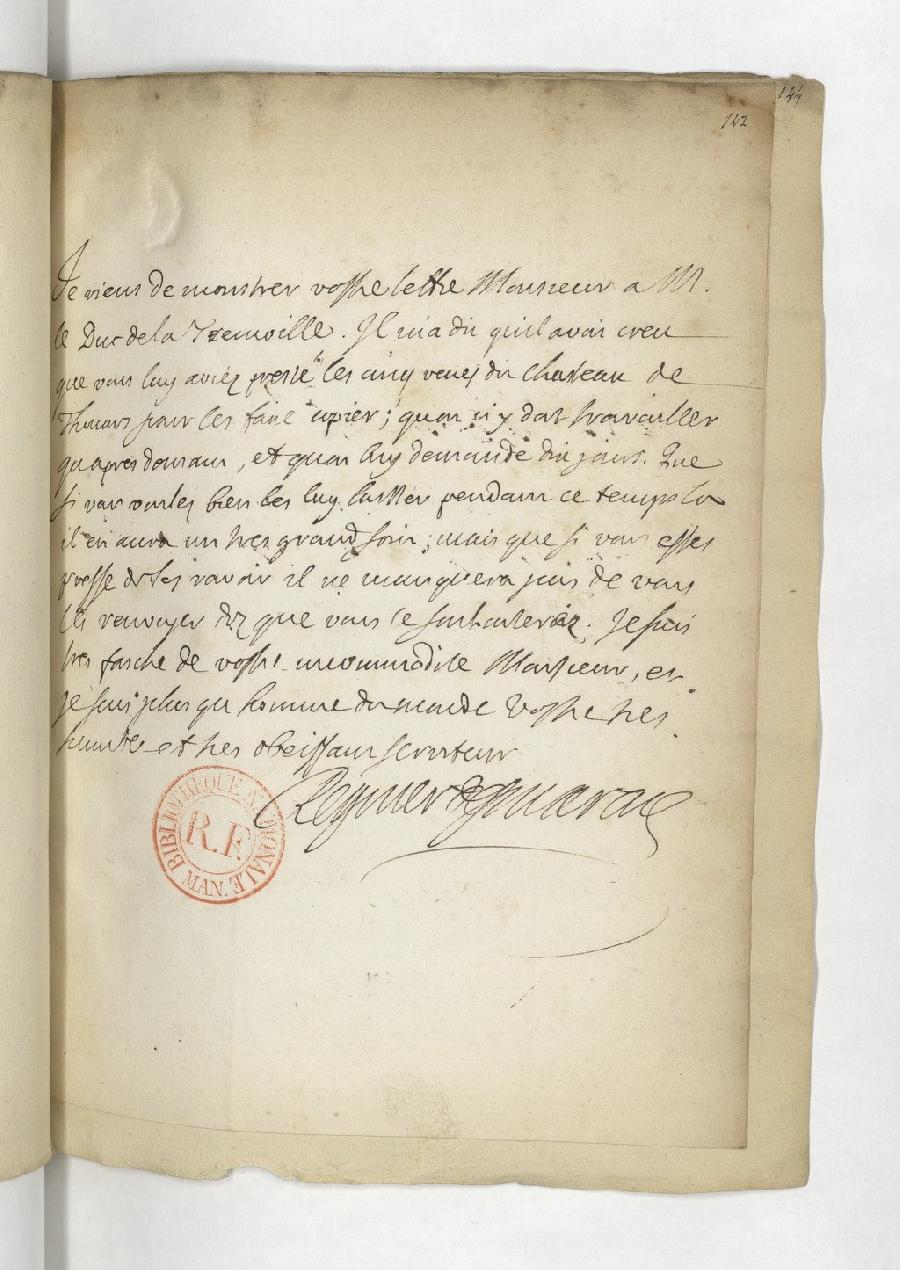 124
142
Je viens de monstrer vostre lettre Monsieur a Mr.
le Duc de la Tremoille. Il m'a dit quil avoit creu
que vous luy aviez presté les cinq veues du chasteau de
Thouars pour les faire copier; quon n'y doit travailler
qu'apres demain, et quon luy demande dix jours. Que
si vous voulez bien les luy laisser pendant ce temps la
il en aura un tres grand soin; mais que si vous estes
pressé de les ravoir il ne manquera pas de vous
les renvoyer dez que vous le souhaiterez. Je suis
tres fasché de vostre incommodité Monsieur, et
je suis plus qu'homme du monde Vostre tres
humble et tres obeissant serviteur
Regnier Desmarais
BIBLIOTHÈQUE NATIONALE
R.F.
MAN.